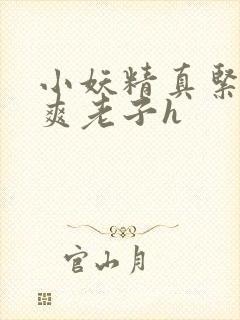 小妖精真紧
爽老子h
官山月